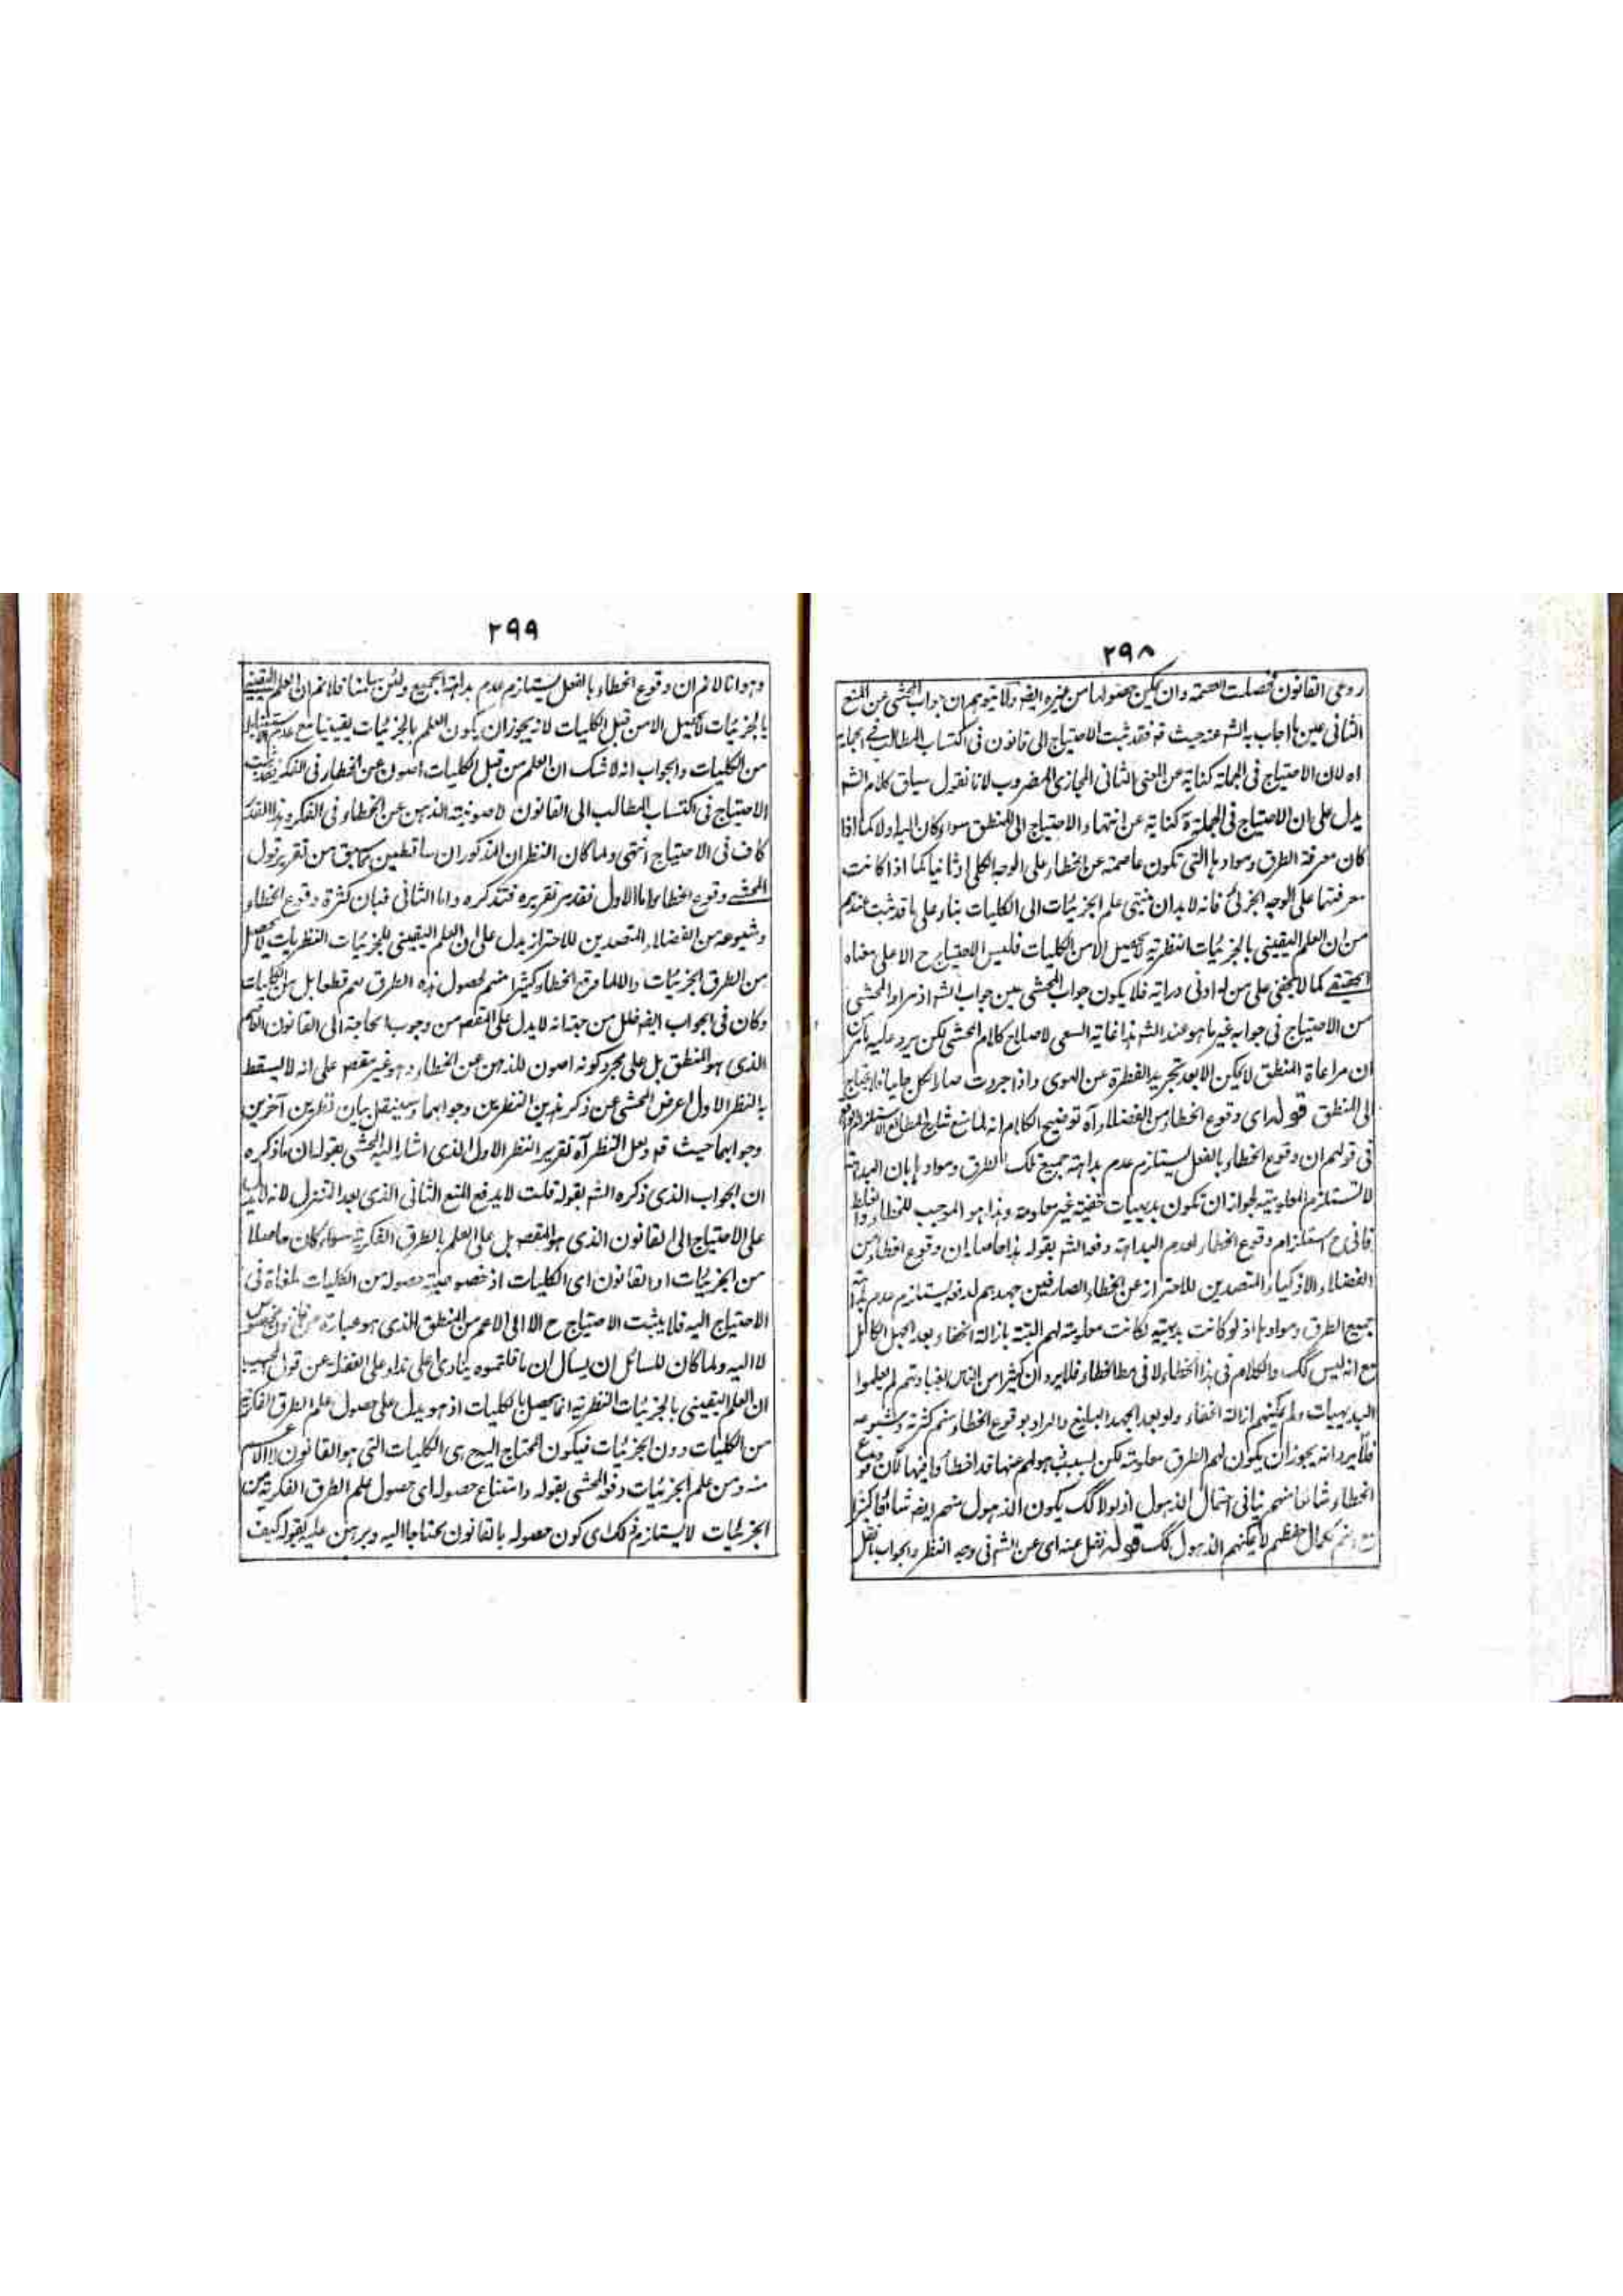 ٢٩٨
روعى القانون فصلت العصمة وان يمكن حصولها من غيره ايضه ولا يتوهم ان جواب المحشى عن المنع
الثانى عين ما اجاب به الشه عنه حيث قه فقد ثبت الاحتياج الى قانون فى اكتساب المطالب فى الجملة
اه لان الاحتياج فى الجملة كناية عن المعنى الثانى المجازى المضروب لانا نقول سياق كلام الشه
يدل على ان الاحتياج فى الجملة كناية عن انتهاء الاحتياج الى المنطق سواء كان اولا كما اذا
كان معرفة الطرق وموادها التى تكون عاصمة عن الخطاء على الوجه الكلى او ثانيا كما اذا كانت
معرفتها على الوجه الجزئى فانه لابد ان ينتهى علم الجزئيات الى الكليات بناء على ما قد ثبت عندهم
من ان العلم اليقينى بالجزئيات النظرية لا يحصل الا من الكليات فليس الاحتياج ح الا على معناه
الحقيقى كما لا يخفى على من له ادنى دراية فلا يكون جواب المحشى عين جواب الشه اذ مراد المحشى
من الاحتياج فى جوابه غير ما هو عند الشه هذا غاية السعى لاصلاح كلام المحشى لكن يرد عليه
ان مراعاة المنطق لا يمكن الا بعد تجريد الفطرة عن الهوى واذا جردت صار الكل جليا فلا يحتاج
الى المنطق قوله اى وقوع الخطاء من الفضلاء آه توضيح الكلام انه لما منع شارح المطالع
فى قولهم ان وقوع الخطاء بالفعل يستلزم عدم بداهة جميع تلك الطرق وموادها بان البداهة
لا تستلزم المعلومية لجواز ان تكون بديهيات خفية غير معلومة وهذا هو الموجب للخطاء والغلط
فانى ح استلزام وقوع الخطاء لعدم البداهة دفعه الشه بقوله هذا حاصله ان وقوع الخطاء من
الفضلاء الاذكياء المتصدين للاحتراز عن الخطاء الصارفين جهدهم لدفعه يستلزم عدم بداهة
جميع الطرق وموادها اذ لو كانت بديهية لكانت معلومة لهم البتة بازالة الخفاء بعد الجهد الكامل
مع انه ليس كك والكلام فى هذا الخطاء لا فى مط الخطاء فلا يرد ان كثيرا من الناس لغباوتهم لم يعلموا
البديهيات ولم يمكنهم ازالة الخفاء ولو بعد الجهد البليغ والمراد بوقوع الخطاء منهم كثرته وشيوعه
فلا يرد انه يجوز ان يكون لهم الطرق معلومة لكن بسبب ذهولهم عنها قد اخطأوا فيها لان وقوع
الخطاء شائعا منهم ينافى احتمال الذهول اذ لولا كك يكون الذهول منهم ايضه شائعا كثيرا
مع انهم لكمال حفظهم لا يمكنهم الذهول كك قوله نقل عنه اى عن الشه فى وجه النظر والجواب نقل
٢٩٩
وهو انا لا نم ان وقوع الخطاء بالفعل يستلزم عدم بداهة الجميع ولئن سلمنا فلا نم ان العلم اليقينى
بالجزئيات لا يحصل الا من قبل الكليات لانه يجوز ان يكون العلم بالجزئيات يقينيا مع عدم
من الكليات والجواب انه لا شك ان العلم من قبل الكليات اصون عن الخطاء فى الفكر فقد ثبت
الاحتياج فى اكتساب المطالب الى القانون لاصونية الذهن عن الخطاء فى الفكر وهذا القدر
كاف فى الاحتياج انتهى ولما كان النظران المذكوران ساقطين مما سبق من تقرير قول
المحشى وقوع الخطاء اما الاول فقد مر تقريره فتذكره واما الثانى فبان كثرة وقوع الخطاء
وشيوعه من الفضلاء المتصدين للاحتراز يدل على ان العلم اليقينى للجزئيات النظريات لا يحصل
من الطرق الجزئيات والا لما وقع الخطاء كثيرا منهم لحصول هذه الطرق لهم قطعا بل من الكليات
وكان فى الجواب ايضه خلل من جهة انه لا يدل على المقصه من وجوب الحاجة الى القانون العاصم
الذى هو المنطق بل على مجرد كونه اصون للذهن عن الخطاء وهو غير مقصه على انه لا يسقط
به النظر الاول اعرض المحشى عن ذكر هذين النظرين وجوابهما وسينقل بيان نظرين آخرين
وجوابهما حيث قه ولعل النظر آه تقرير النظر الاول الذى اشار اليه المحشى بقوله ان ما ذكره
ان الجواب الذى ذكره الشه بقوله قلت لا يدفع المنع الثانى الذى بعد التنزل لانه لا يدل
على الاحتياج الى القانون الذى هو المقصه بل على العلم بالطرق الفكرية سواء كان حاصلا
من الجزئيات او القانون اى الكليات اذ خصوصية حصوله من الكليات ملغاة فى
الاحتياج اليه فلا يثبت الاحتياج ح الا الى الاعم من المنطق الذى هو عبارة عن قانون مخصوص
لا اليه ولما كان للسائل ان يسأل ان ما قلتموه ينادى اعلى نداء على الغفلة عن قول المجيب
ان العلم اليقينى بالجزئيات النظرية انما يحصل بالكليات اذ هو يدل على حصول علم الطرق الفكرية
من الكليات دون الجزئيات فيكون المحتاج اليه ح هى الكليات التى هو القانون لا الاعم
منه ومن علم الجزئيات دفعه المحشى بقوله وامتناع حصوله اى حصول علم الطرق الفكرية من
الجزئيات لا يستلزم ذلك اى كون حصوله بالقانون محتاجا اليه وبرهن عليه بقوله كيف